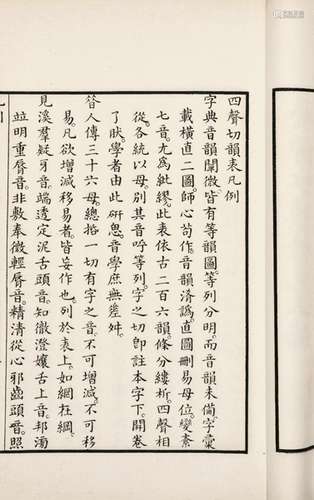 四聲切韻表凡例
字典音韻闡微皆有等韻圖等列分明而音韻未備字彙
載橫直二圖師心苟作音韻淆譌直圖刪易母位變紊
七音尤為紕繆此表依古二百六韻條分縷析四聲相
從各統以母別其音呼等列字之切即註本字下開卷
了肰學者由此硏思音學庶無差舛
昔人傳三十六母總括一切有字之音不可增減不可移
易凡欲增減移易者皆妄作也列於表上如網在綱
見溪羣疑牙音端透定泥舌頭音知徹澄孃舌上音邦滂
竝明重脣音非敷奉微輕脣音精清從心邪齒頭音照